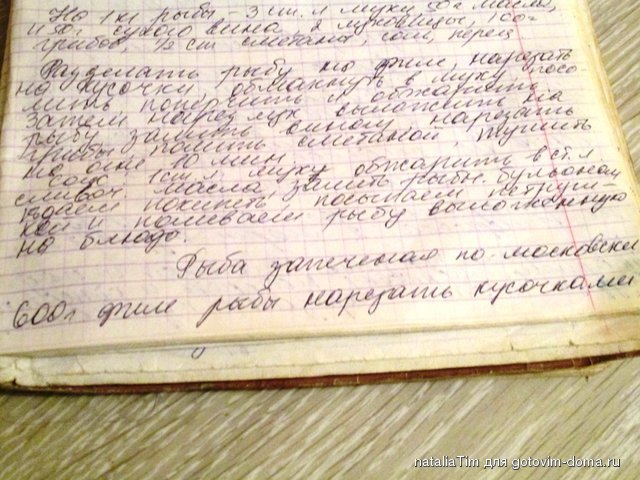 На 1 кг рыбы - 3 ст. л муки 50г масла,
150г сухого вина 2 луковицы, 100г
грибов, 1/2 ст сметаны, соль, перец
Разделать рыбу на филе, нарезать
на кусочки, обмакнуть в муку посо-
лить поперчить и обжарить
Затем нарез лук выложить на
рыбу залить вином, нарезать
грибы залить сметаной, тушить
на огне 10 мин.
Соус 1 ст л. муки обжарить в ст. л
сливоч масла, залить рыбн. бульоном
даем покипеть посыпаем петруш-
кой и поливаем рыбу выложенную
на блюдо.
Рыба запеченая по-московски
600г филе рыбы нарезать кусочками
nataliaTim для gotovim-doma.ru